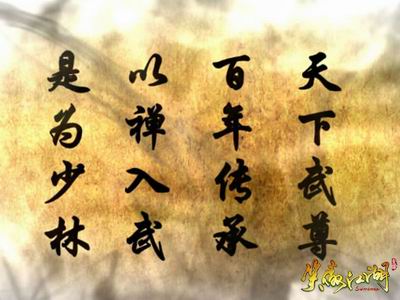 天下武尊
百年传承
以禅入武
是为少林
笑傲江湖